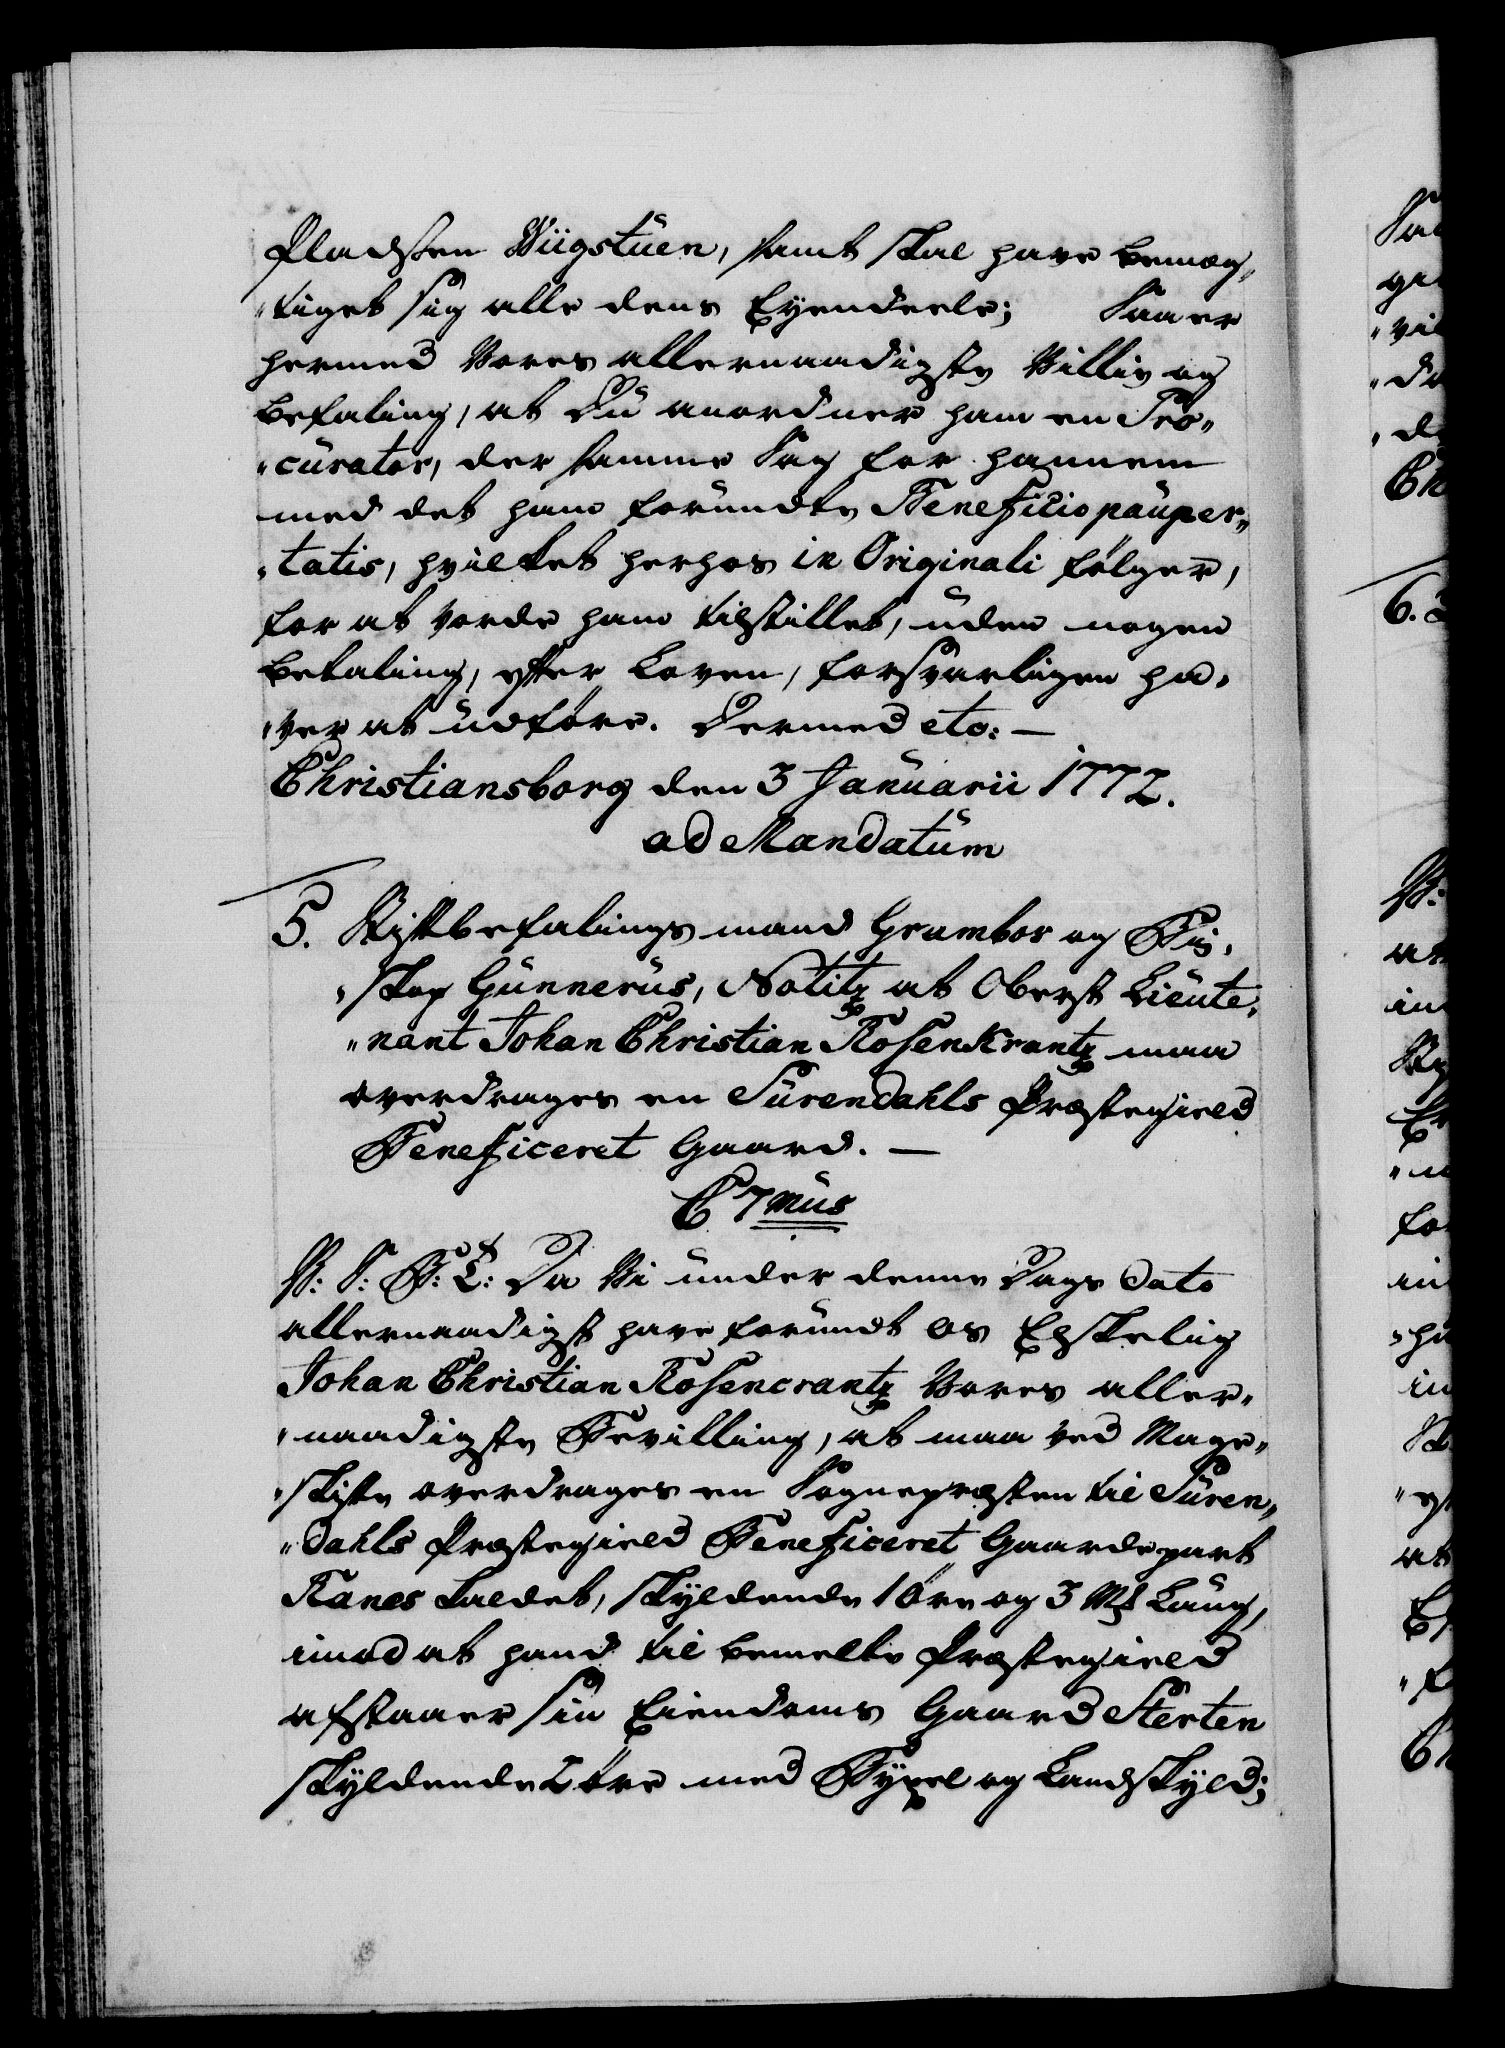 Pladssen Wiigstuen, samt skal have bemæg„
„tiget sig alle dens Eyendeele; Saa er
hermed Vores allernaadigste Villie og
befaling, at Du anordner ham en Pro„
„curator, der samme Sag for hannem
med det ham forundte Beneficio pauper„
„tatis, hvilket herhos in Originali følger,
for at vorde ham tilstillet, uden nogen
betaling, efter Loven, forsvarligen ha„
„ver at udføre. Dermed etc: —
Christiansborg den 3 Januarii 1772.
ad Mandatum
5. Stiftbefalingsmand Grambor og Bi„
„skop Gunnerus, Notitz at Oberst Lieute„
„nant Johan Christian Rosenkrantz maa
overdrages en Surendahls Præstegield
Beneficeret Gaard. —
C 7mus
V: S: G: T: Da Vi under denne Dags Dato
allernaadigst have forundt os Elskelig
Johan Christian Rosencrantz Vores aller„
„naadigste Bevilling, at maa ved Mage„
„skifte overdrages en Sognepræsten til Suren„
„dahls Præstegield Beneficeret Gaardepart
Ranes kaldet, skyldende 1 Øre og 3 Mk Laug,
imod at hand til bemelte Præstegield
afstaaer sin Eiendoms Gaard Sterten
skyldende 2 Øre med Bÿxel og Landskÿld;